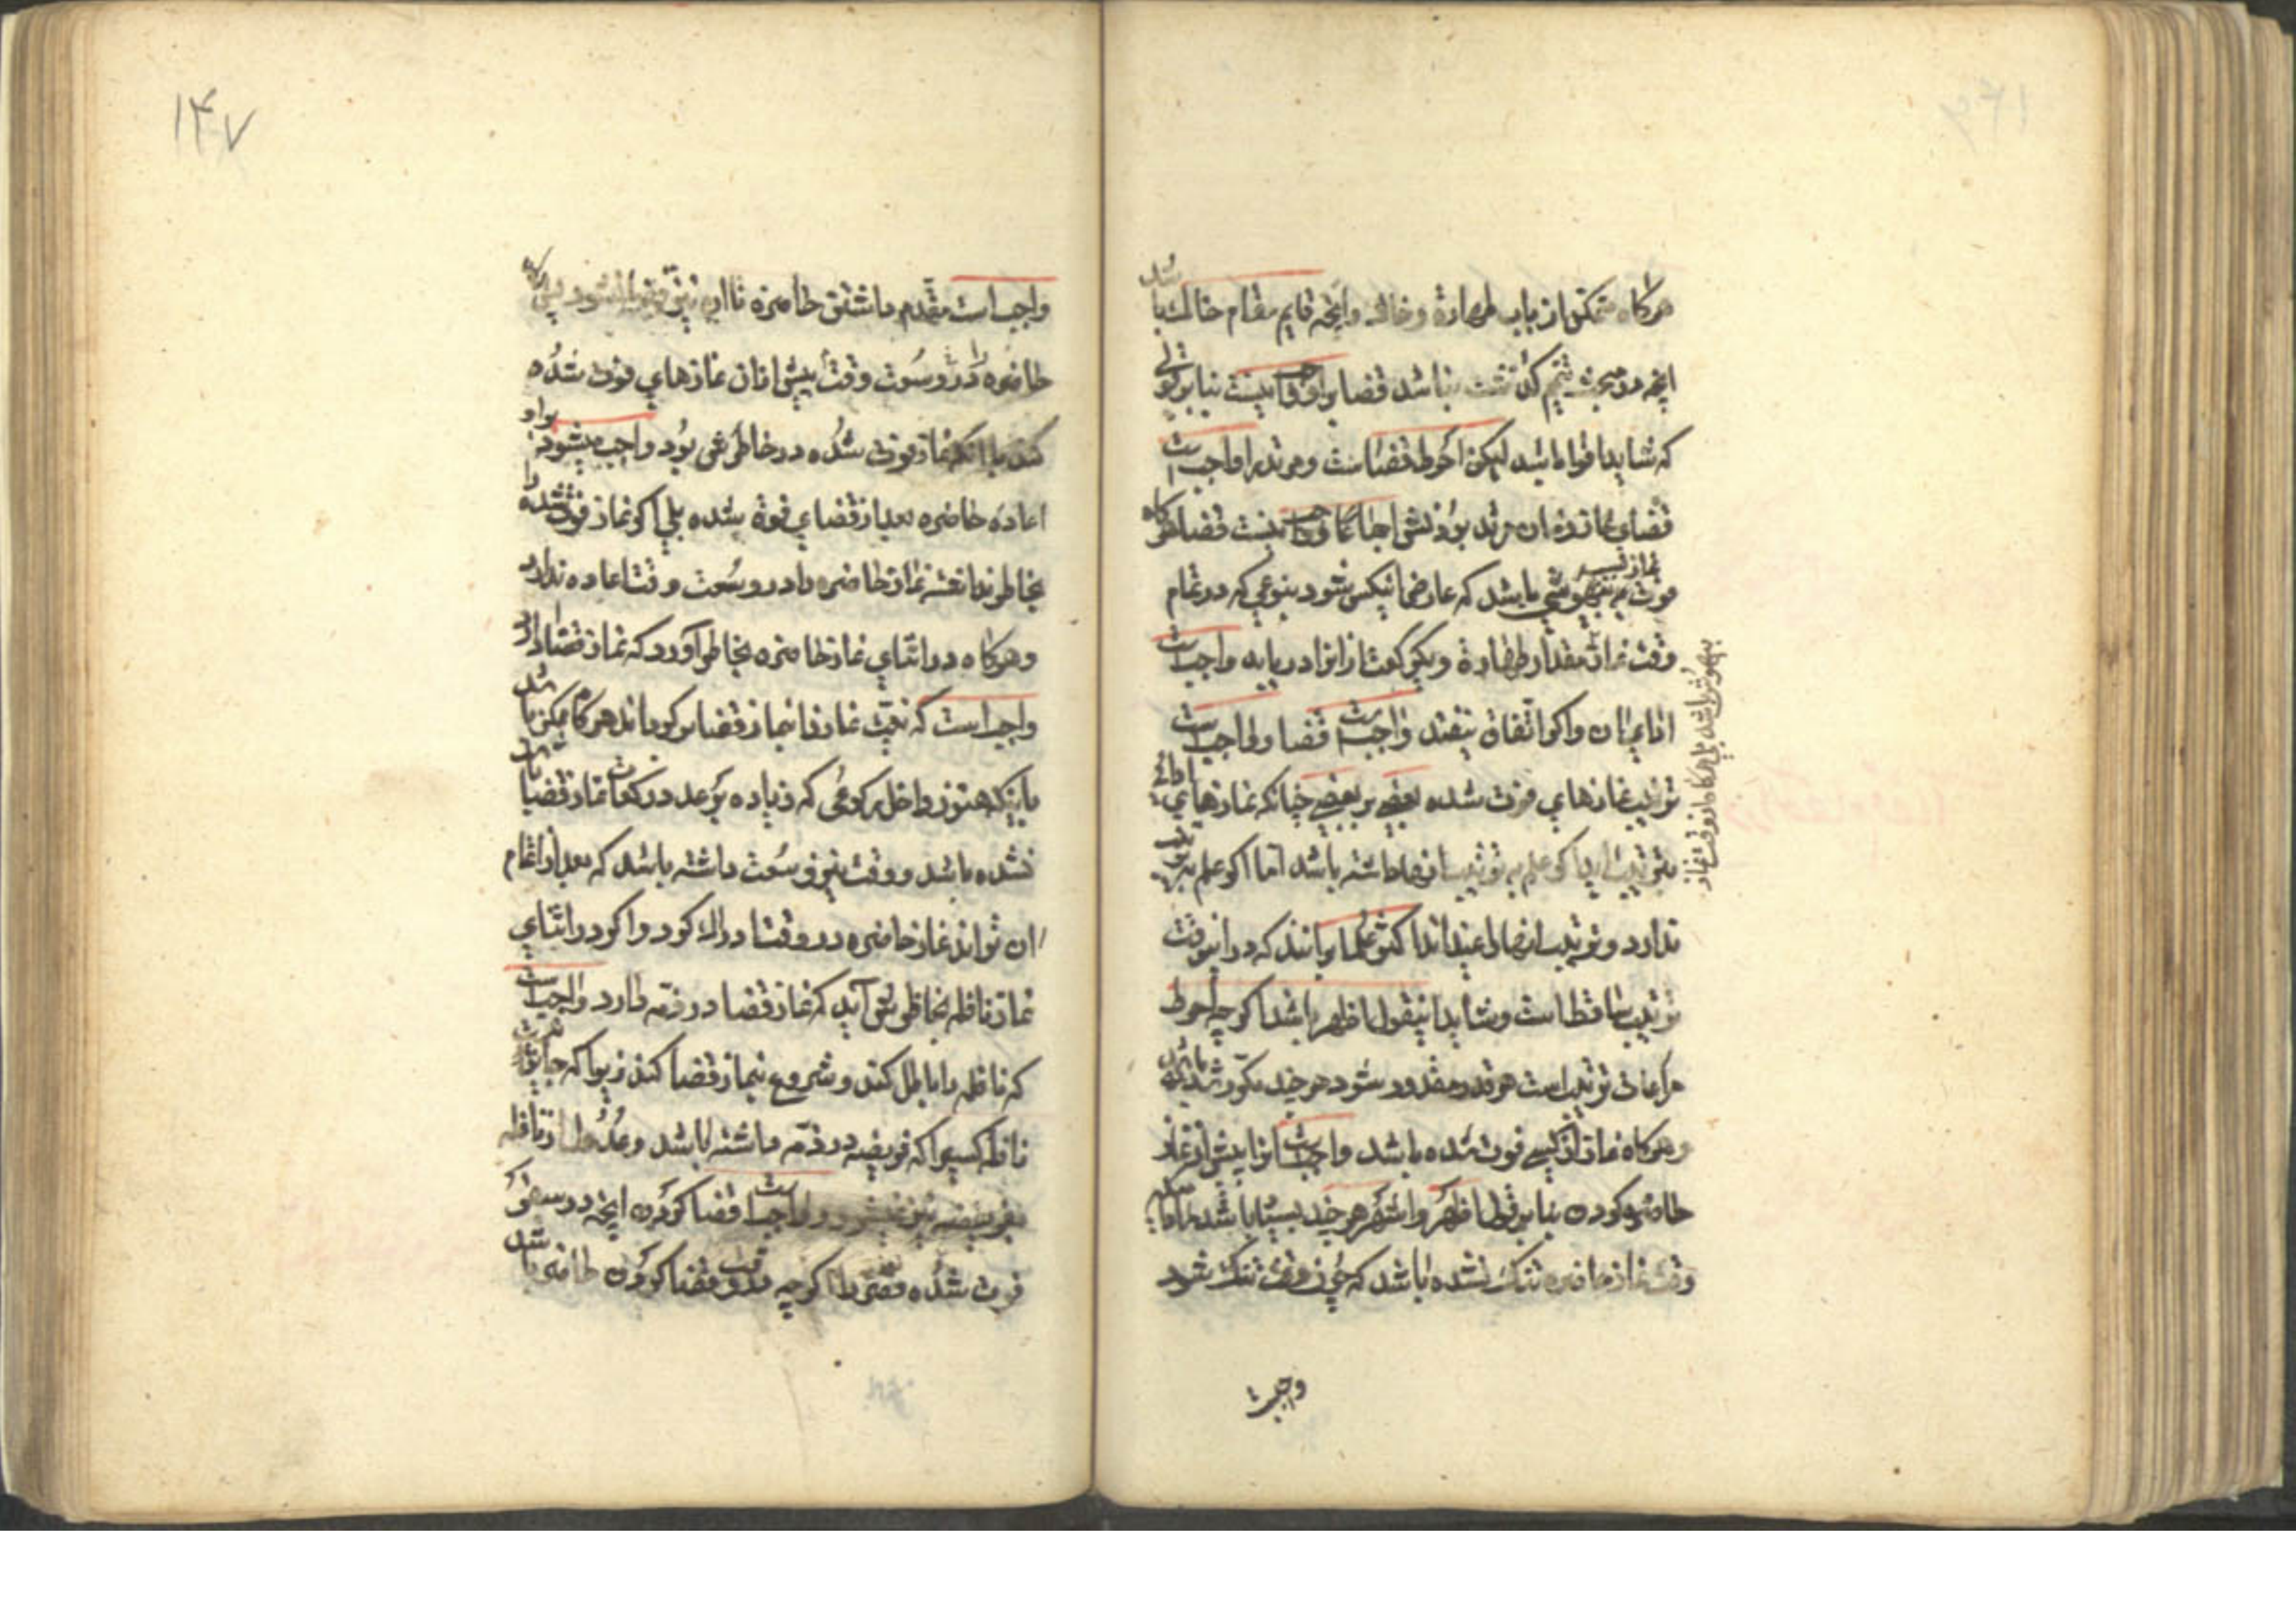 هرکاه متمکن از باب طهارة و خاک و آنچه قایم مقام خاکست باشد
آنچه در مبحث تیمم گذشت نباشد قضا براو واجب نیست بنابر قولی
که شاید اقوا باشد لیکن احوط قضاست و مرتد را واجب است
قضای نماز زمان مرتد بودنش اجماعا و واجب نیست قضا هرکاه
فوت نماز بسبب بیهوشی باشد که عارض آنکس شود بنوعی که در تمام
وقت نماز مقدار طهارة و یکرکعت از انرا در یابد واجب است
ادای آن و اکر اتفاق نیفتد واجب است قضا و واجب است
ترتیب نمازهای فوت شده بعضی بر بعضی چنانکه نمازهای ادائی
بترتیب است اکر علم به ترتیب انها داشته باشد اما اکر علم بترتیب
ندارد و ترتیب انها را نمیداند اکثر علما برانند که در اینوقت
ترتیب ساقط است و شاید اینقول اظهر باشد اکرچه احوط
مراعات ترتیب است هرقدر مقدور شود هرچند مکرر شدن باشد
و هرکاه نماز از کسی فوت شده باشد واجب است انرا پیش از نماز
حاضره کردن بنابر قول اظهر و اشهر هرچند بسیار باشد مادامیکه
وقت نماز حاضره تنک نشده باشد که چون وقت تنک شود
واجبست
بیهوش باشد بلی هرکاه از وقت نماز
۱۴۷
واجب است مقدم داشتن حاضره تا ان نیز قضا نشود پس اکر
حاضره را در وسعت وقت پیش از ان نمازهای فوت شده
کند با انکه نماز فوت شده در خاطرش بود واجب میشود براو
اعاده حاضره بعد از قضای فوت شده بلی اکر نماز فوت شده را
بخاطر نداشته نماز حاضره را در وسعت وقت اعاده ندارد
و هرکاه در اثنای نماز حاضره بخاطر آورد که نماز قضا دارد
واجب است که نیت نماز را بنماز قضا برکرداند هرکاه ممکن باشد
باینکه هنوز داخل رکوعی که زیاده بر عدد رکعات نماز قضا باشد
نشده باشد و وقت نیز وسعت داشته باشد که بعد از اتمام
ان تواند نماز حاضره در وقت ادراک کرد و اکر در اثنای
نماز نافله بخاطرش آید که نماز قضا در ذمه دارد واجب است
که نافله را باطل کند و شروع بنماز قضا کند زیرا که جایز نیست
نافله کسیرا که فریضه در ذمه داشته باشد و عدول از نافله
بفریضه نیز نمیشود و واجب است قضا کردن آنچه در سفر
فوت شده قصر را اکرچه در وقت قضا کردن حاضر باشد